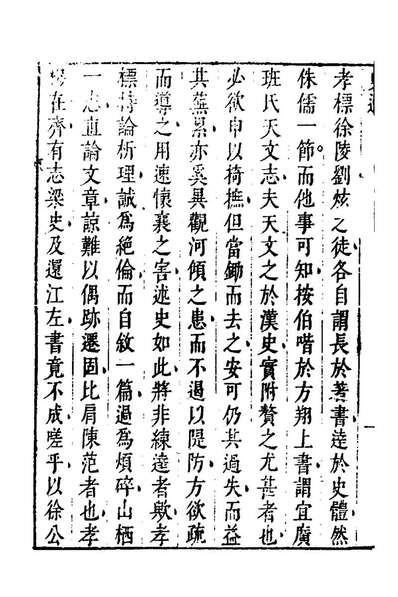 孝標徐陵劉炫之徒各自謂長於著書達於史體然
侏儒一節而他事可知按伯喈於方翔上書謂宜廣
班氏天文志夫天文之於漢史實附贅之尤甚者也
必欲申以掎摭但當鋤而去之安可仍其過失而益
其蕪累亦奚異觀河傾之患而不遏以隄防方欲疏
而導之用速懷襄之害述史如此將非練達者歟孝
標持論析理誠為絕倫而自敘一篇過為煩碎山栖
一志直論文章諒難以偶跡遷固比肩陳范者也孝
在齊有志梁史及還江左書竟不成嗟乎以徐公